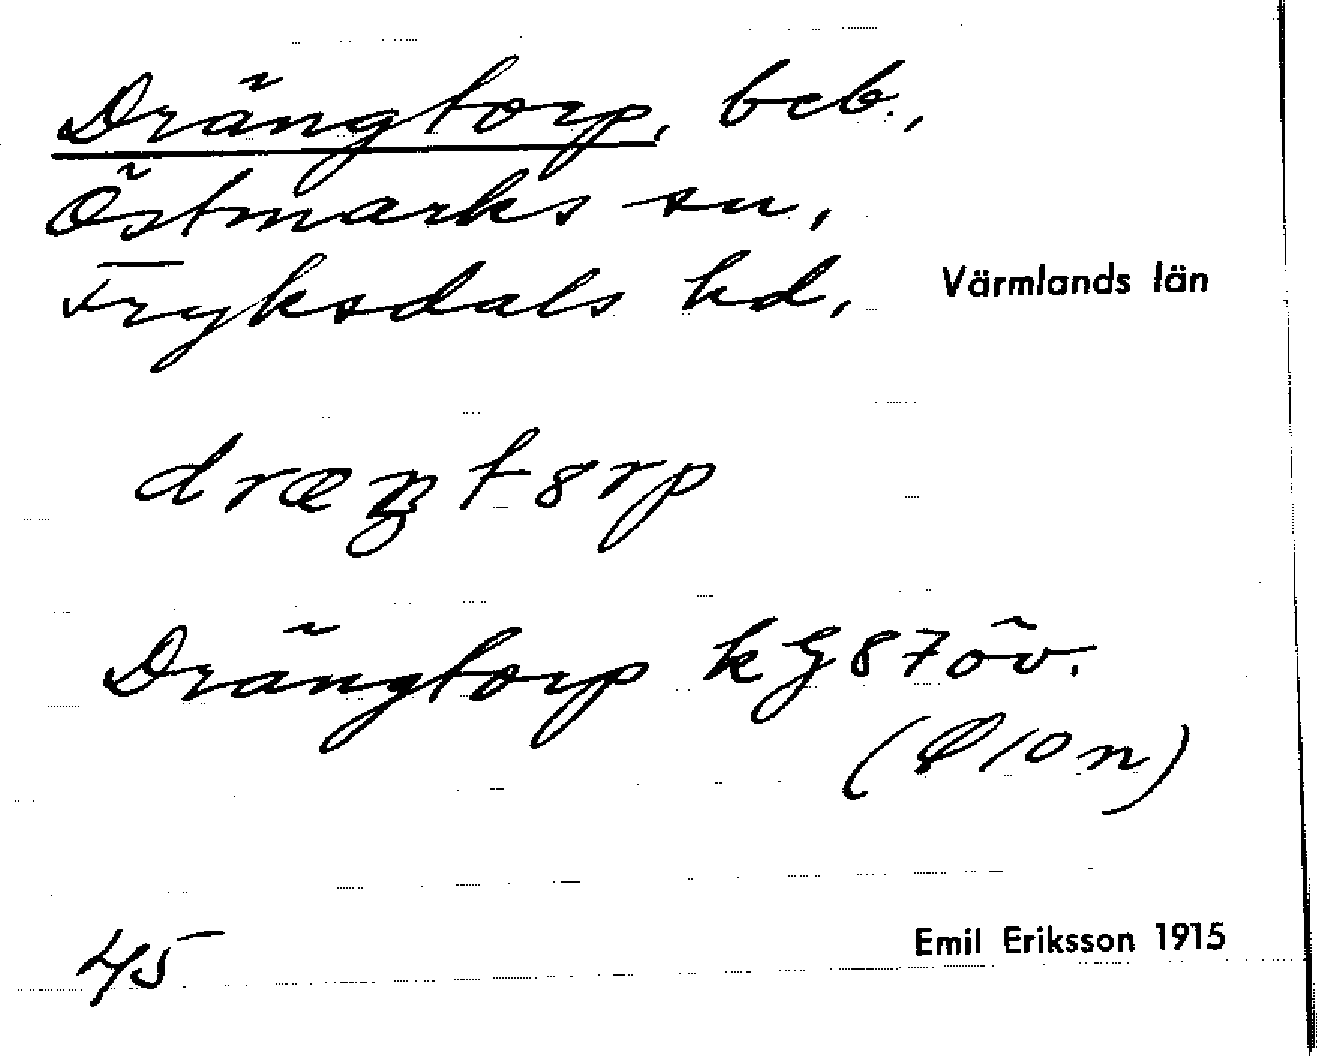 Drängtorp, beb.,
Östmarks sn,
Fryksdals hd, Värmlands län
Drängtorp kG87öv.
45 Emil Eriksson 1915